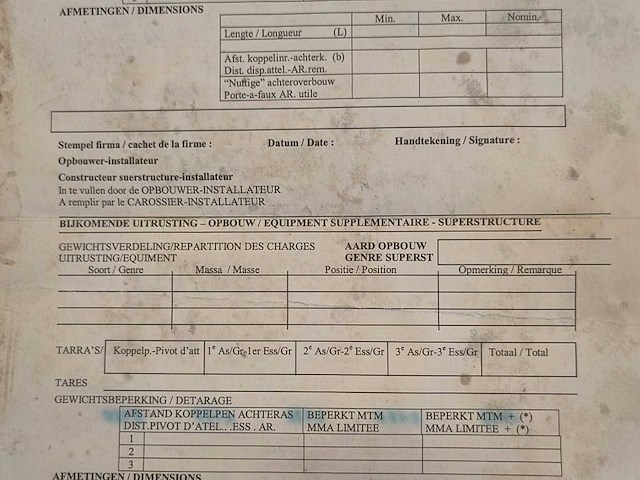 AFMETINGEN / DIMENSIONS
Min. Max. Nomin.
Lengte / Longueur (L)
Afst. koppelinr.-achterk. (b)
Dist. disp.attel.-AR.rem.
“Nuttige” achteroverbouw
Porte-a-faux AR. utile
Stempel firma / cachet de la firme : Datum / Date : Handtekening / Signature :
Opbouwer-installateur
Constructeur suerstructure-installateur
In te vullen door de OPBOUWER-INSTALLATEUR
A remplir par le CAROSSIER-INSTALLATEUR
BIJKOMENDE UITRUSTING – OPBOUW / EQUIPMENT SUPPLEMENTAIRE - SUPERSTRUCTURE
GEWICHTSVERDELING/REPARTITION DES CHARGES AARD OPBOUW
UITRUSTING/EQUIMENT GENRE SUPERST
Soort / Genre Massa / Masse Positie / Position Opmerking / Remarque
TARRA'S/ Koppelp.-Pivot d'att 1e As/Gr-1er Ess/Gr 2e As/Gr-2e Ess/Gr 3e As/Gr-3e Ess/Gr Totaal / Total
TARES
GEWICHTSBEPERKING / DETARAGE
AFSTAND KOPPELPEN ACHTERAS BEPERKT MTM BEPERKT MTM + (*)
DIST.PIVOT D'ATEL.. .ESS . AR. MMA LIMITEE MMA LIMITEE + (*)
1
2
3
AFMETINGEN / DIMENSIONS